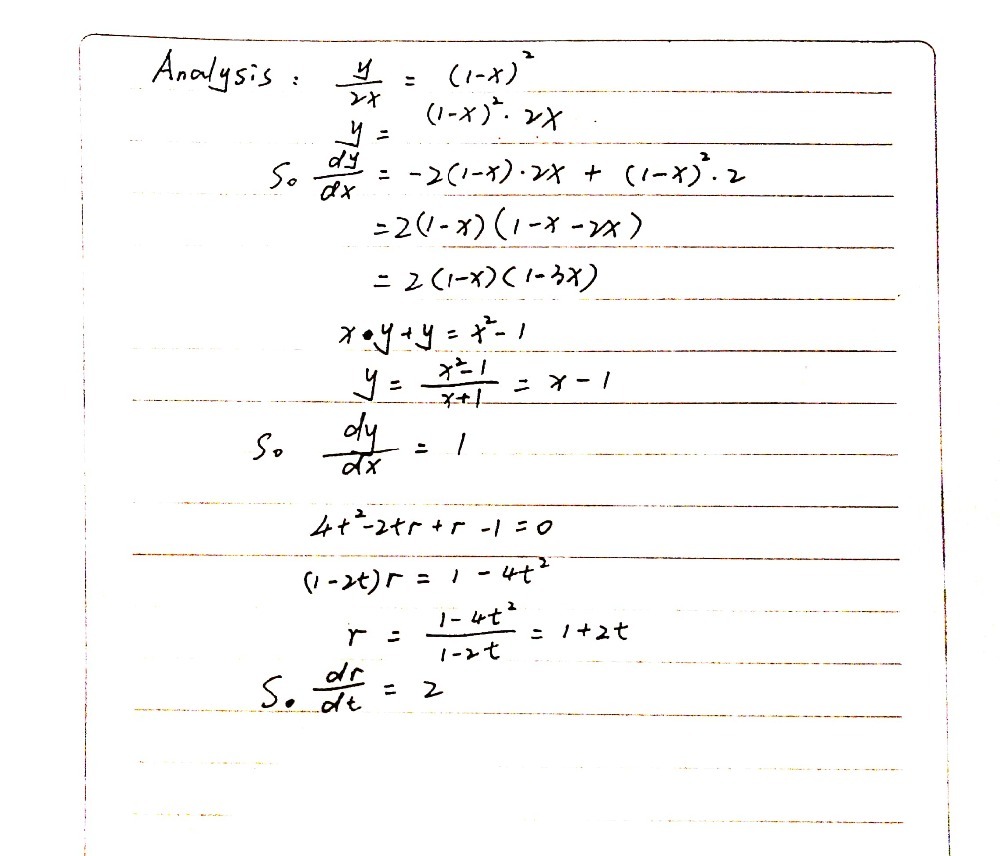 Analysis : y/2x = (1-x)²
y = (1-x)² · 2x
So dy/dx = -2(1-x)·2x + (1-x)²·2
=2(1-x)(1-x-2x)
= 2(1-x)(1-3x)
x·y+y = x²-1
y = x²-1/x+1 = x-1
So dy/dx = 1
4t²-2tr+r-1=0
(1-2t)r = 1-4t²
r = 1-4t²/1-2t = 1+2t
So dr/dt = 2